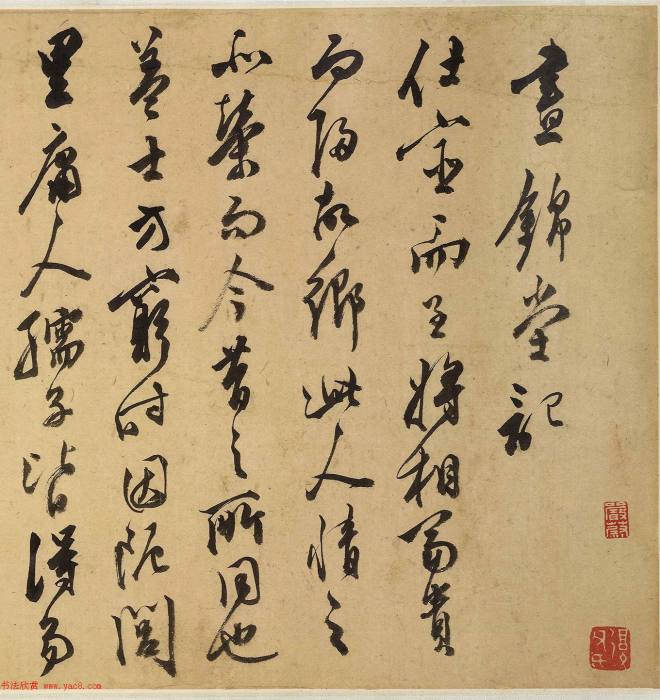 晝錦堂記
仕宦而至將相富貴
而歸故鄉此人情之
所榮而今昔之所同也
蓋士方窮時困阨閭
里庸人孺子皆得易
书法欣赏 www.yac8.com